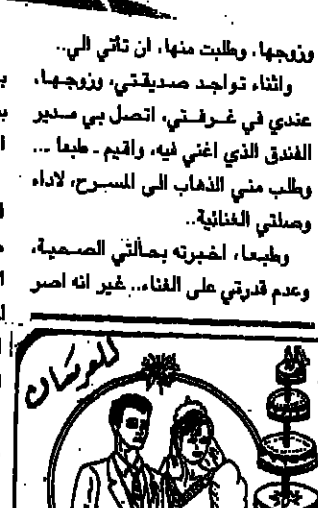 وزوجها، وطلبت منها، ان تأتي الي..
واثناء تواجد صديقتي، وزوجها،
عندي في غرفتي، اتصل بي مدير
الفندق الذي اغني فيه، واقيم ـ طبعا ـ..
وطلب مني الذهاب الى المسرح، لاداء
وصلتي الغنائية..
وطبعا، اخبرته بحالتي الصحية،
وعدم قدرتي على الغناء.. غير انه اصر
للعرسان